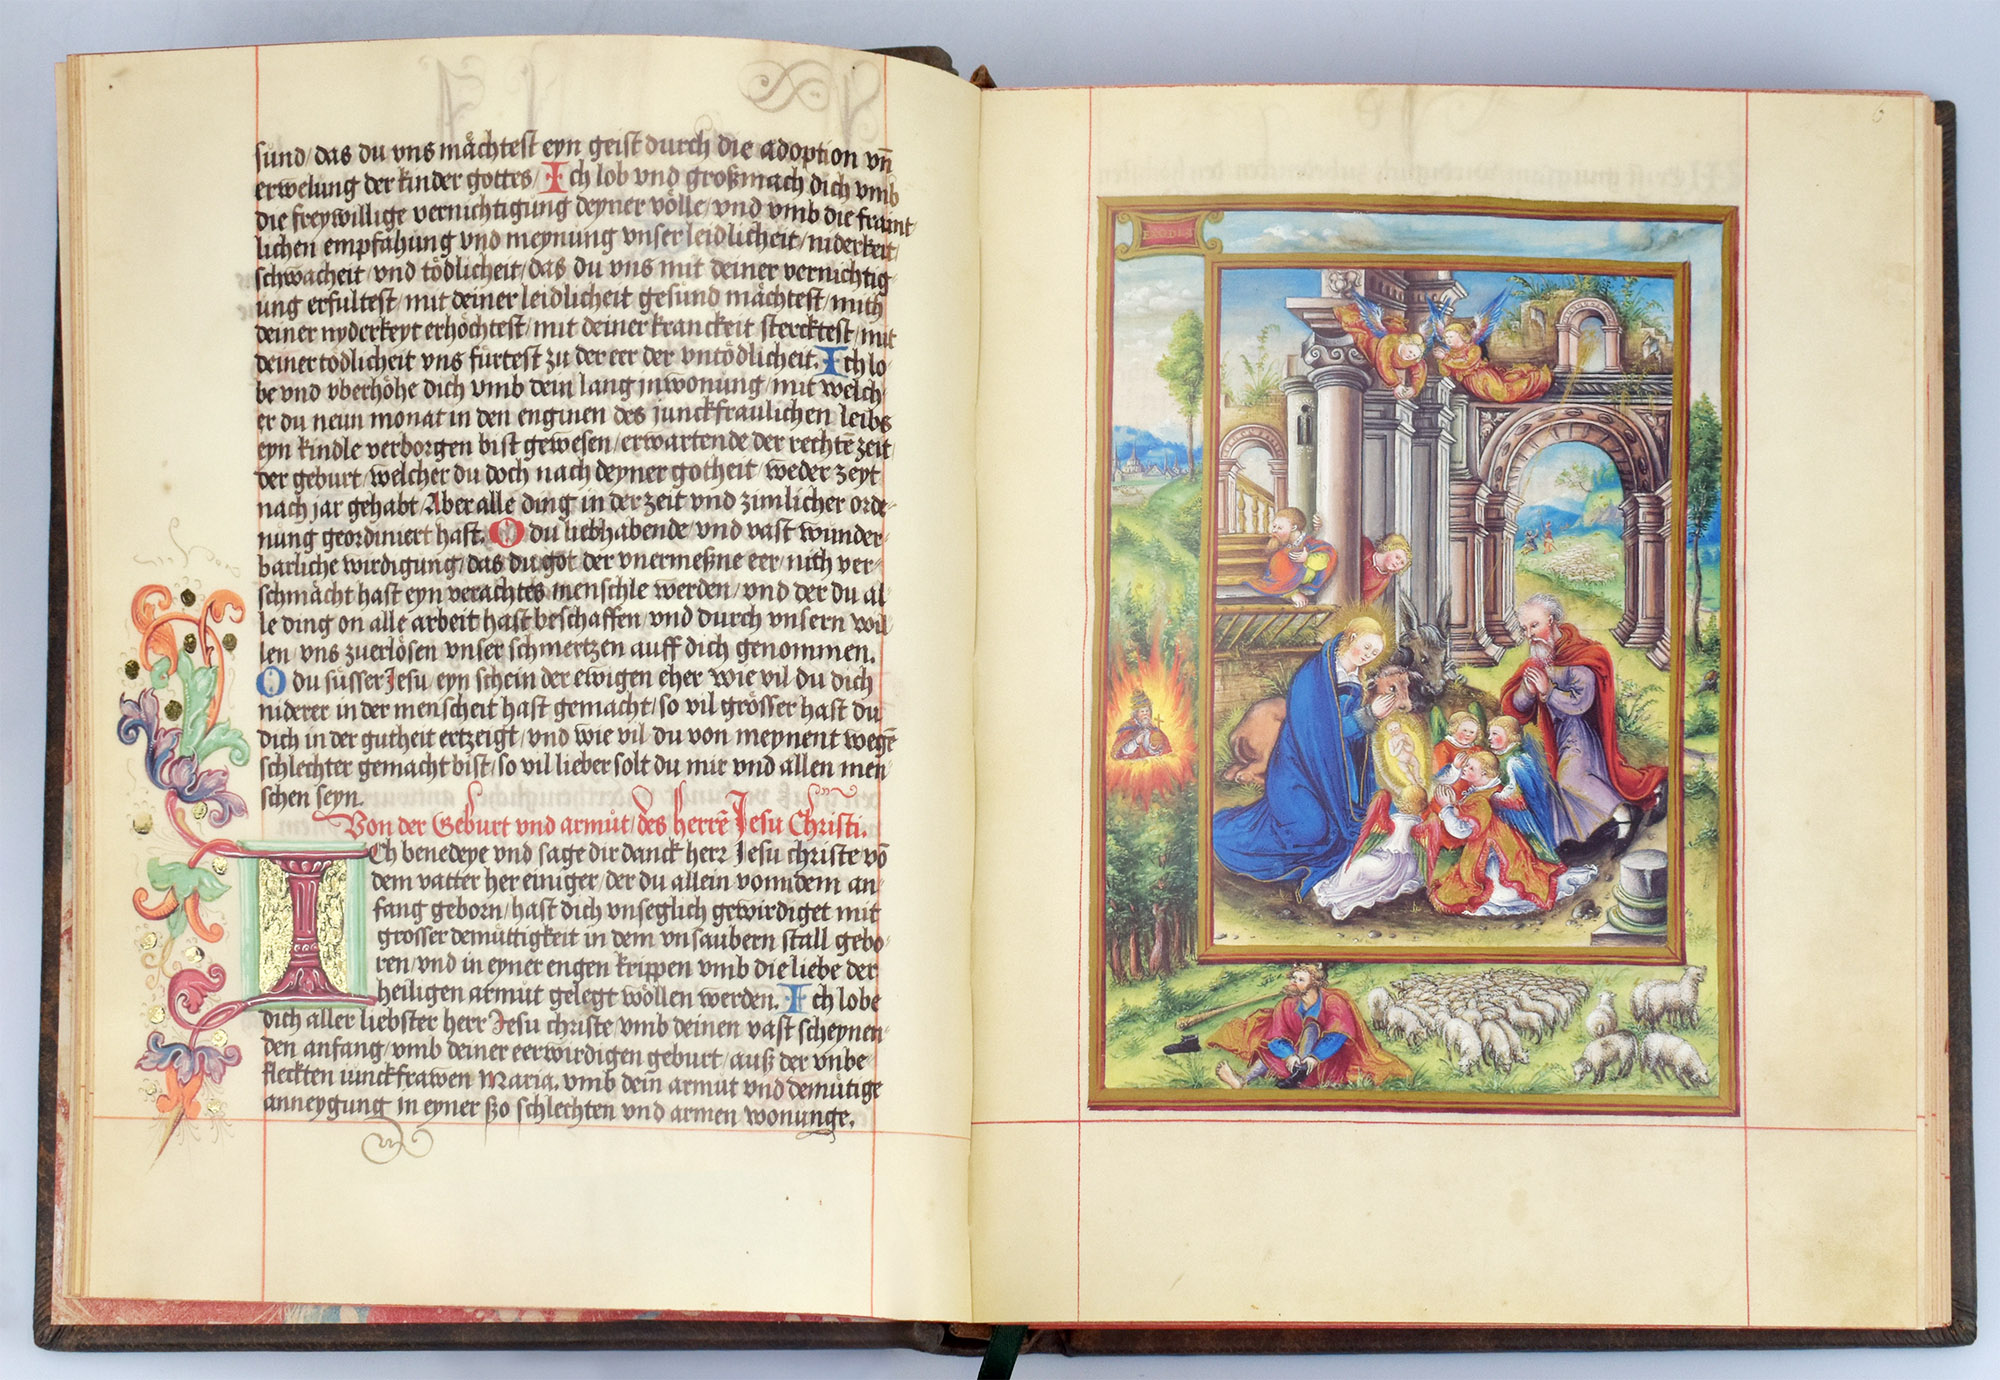 sünd/das du vns mächtest eyn geist durch die adoption vn̄
erwelung der kinder gottes/Ich lob vnd großmach dich vmb
die freywillige vernichtigung deyner völle/vnd vmb die framt
lichen empfahung vnd meynung vnser leidlicheit/niderkeit/
schwacheit/vnd tödlicheit/das du vns mit deiner vernichtig-
ung erfultest/mit deiner leidlicheit gesund mächtest/mith
deiner nyderkeyt erhöchtest/mit deiner kranckeit stercktest/mit
deiner todlicheit vns fürtest zu der eer der vntödlicheit. Ich lo
be vnd vberhöhe dich vmb dein lang jnwonung/mit welch-
er du neun monat in den enginen des junckfraulichen leibs
eyn kindle verborgen bist gewesen/erwartende der rechtē zeit/
der geburt/welcher du doch nach deyner gotheit/weder zeyt
nach jar gehabt/Aber alle ding in der zeit vnd zimlicher orde-
nung geordiniert hast. O du liebhabende vnd vast wunder-
barliche wirdigung/das du got der vnermeßne eer/nith ver-
schmächt hast eyn verachtes menschle werden/vnd der du al
le ding on alle arbeit hast beschaffen/vnd durch vnsern wil
len vns zuerlösen vnser schmertzen auff dich genommen.
O du süsser Jesu/eyn schein der ewigen eher wie vil du dich
niderer in der menscheit hast gemacht/so vil grösser hast du
dich in der gutheit ertzeigt/vnd wie vil du von meynent wegē
schlechter gemacht bist/so vil lieber solt du mir vnd allen men-
schen seyn.
Von der Geburt vnd armüt/des herrē Jesu Christi.
ICh benedeye vnd sage dir danck herr Jesu christe vō
dem vatter her einiger/der du allein vonn dem an-
fang geborn/hast dich vnseglich gewirdiget mit
grosser demüttigkeit in dem vnsaubern stall gebo-
ren/vnd in eyner engen krippen vmb die liebe der
heiligen armut gelegt wöllen werden. Ich lobe
dich aller liebster herr Jesu christe/vmb deinen vast scheynen-
den anfang/vmb deiner eerwirdigen geburt/auß der vnbe-
fleckten iunckfrawen Maria. vmb dein armut vnd demütige
anneygung in eyner ßo schlechten vnd armen wonunge.
6
EXODI 3